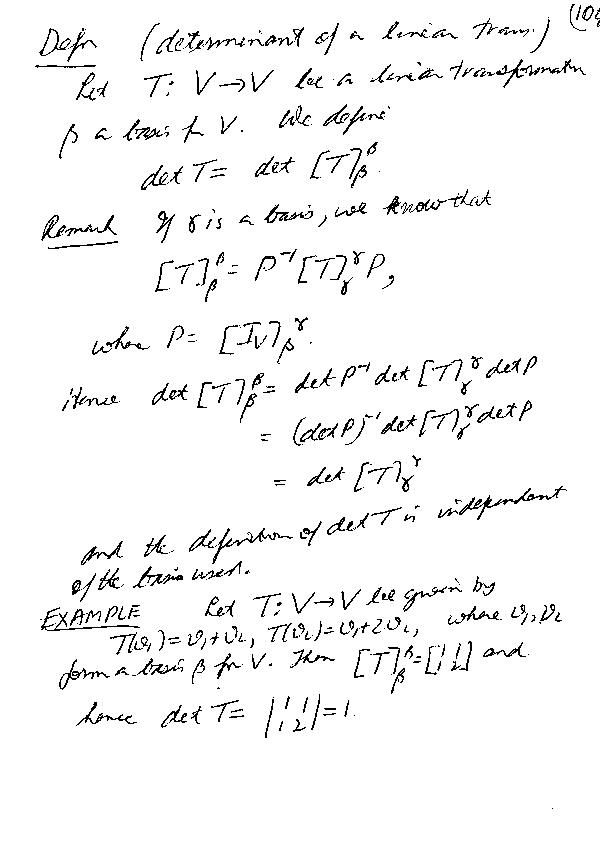 (104
Defn (determinant of a linear trans.)
Let T: V→V be a linear transformation
β a basis for V. We define
det T = det [T]_β^β.
Remark If γ is a basis, we know that
[T]_β^β = P⁻¹ [T]_γ^γ P,
where P = [I_V]_β^γ.
Hence det [T]_β^β = det P⁻¹ det [T]_γ^γ det P
= (det P)⁻¹ det [T]_γ^γ det P
= det [T]_γ^γ
and the definition of det T is independent
of the basis used.
EXAMPLE Let T: V→V be given by
T(v₁) = v₁+v₂, T(v₂) = v₁+2v₂, where v₁, v₂
form a basis β for V. Then [T]_β^β = [1 1; 1 2] and
hence det T = |1 1; 1 2| = 1.